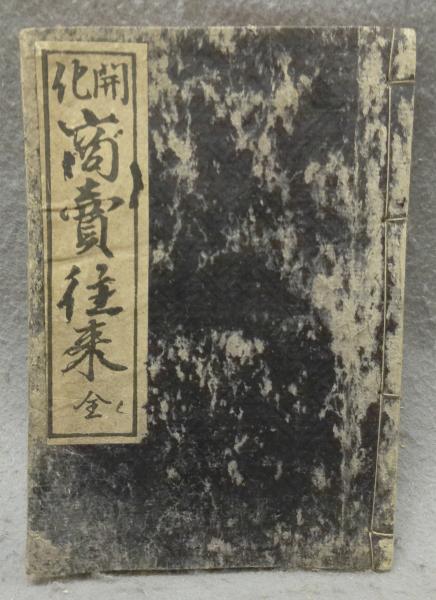 開化
商賣往来
全